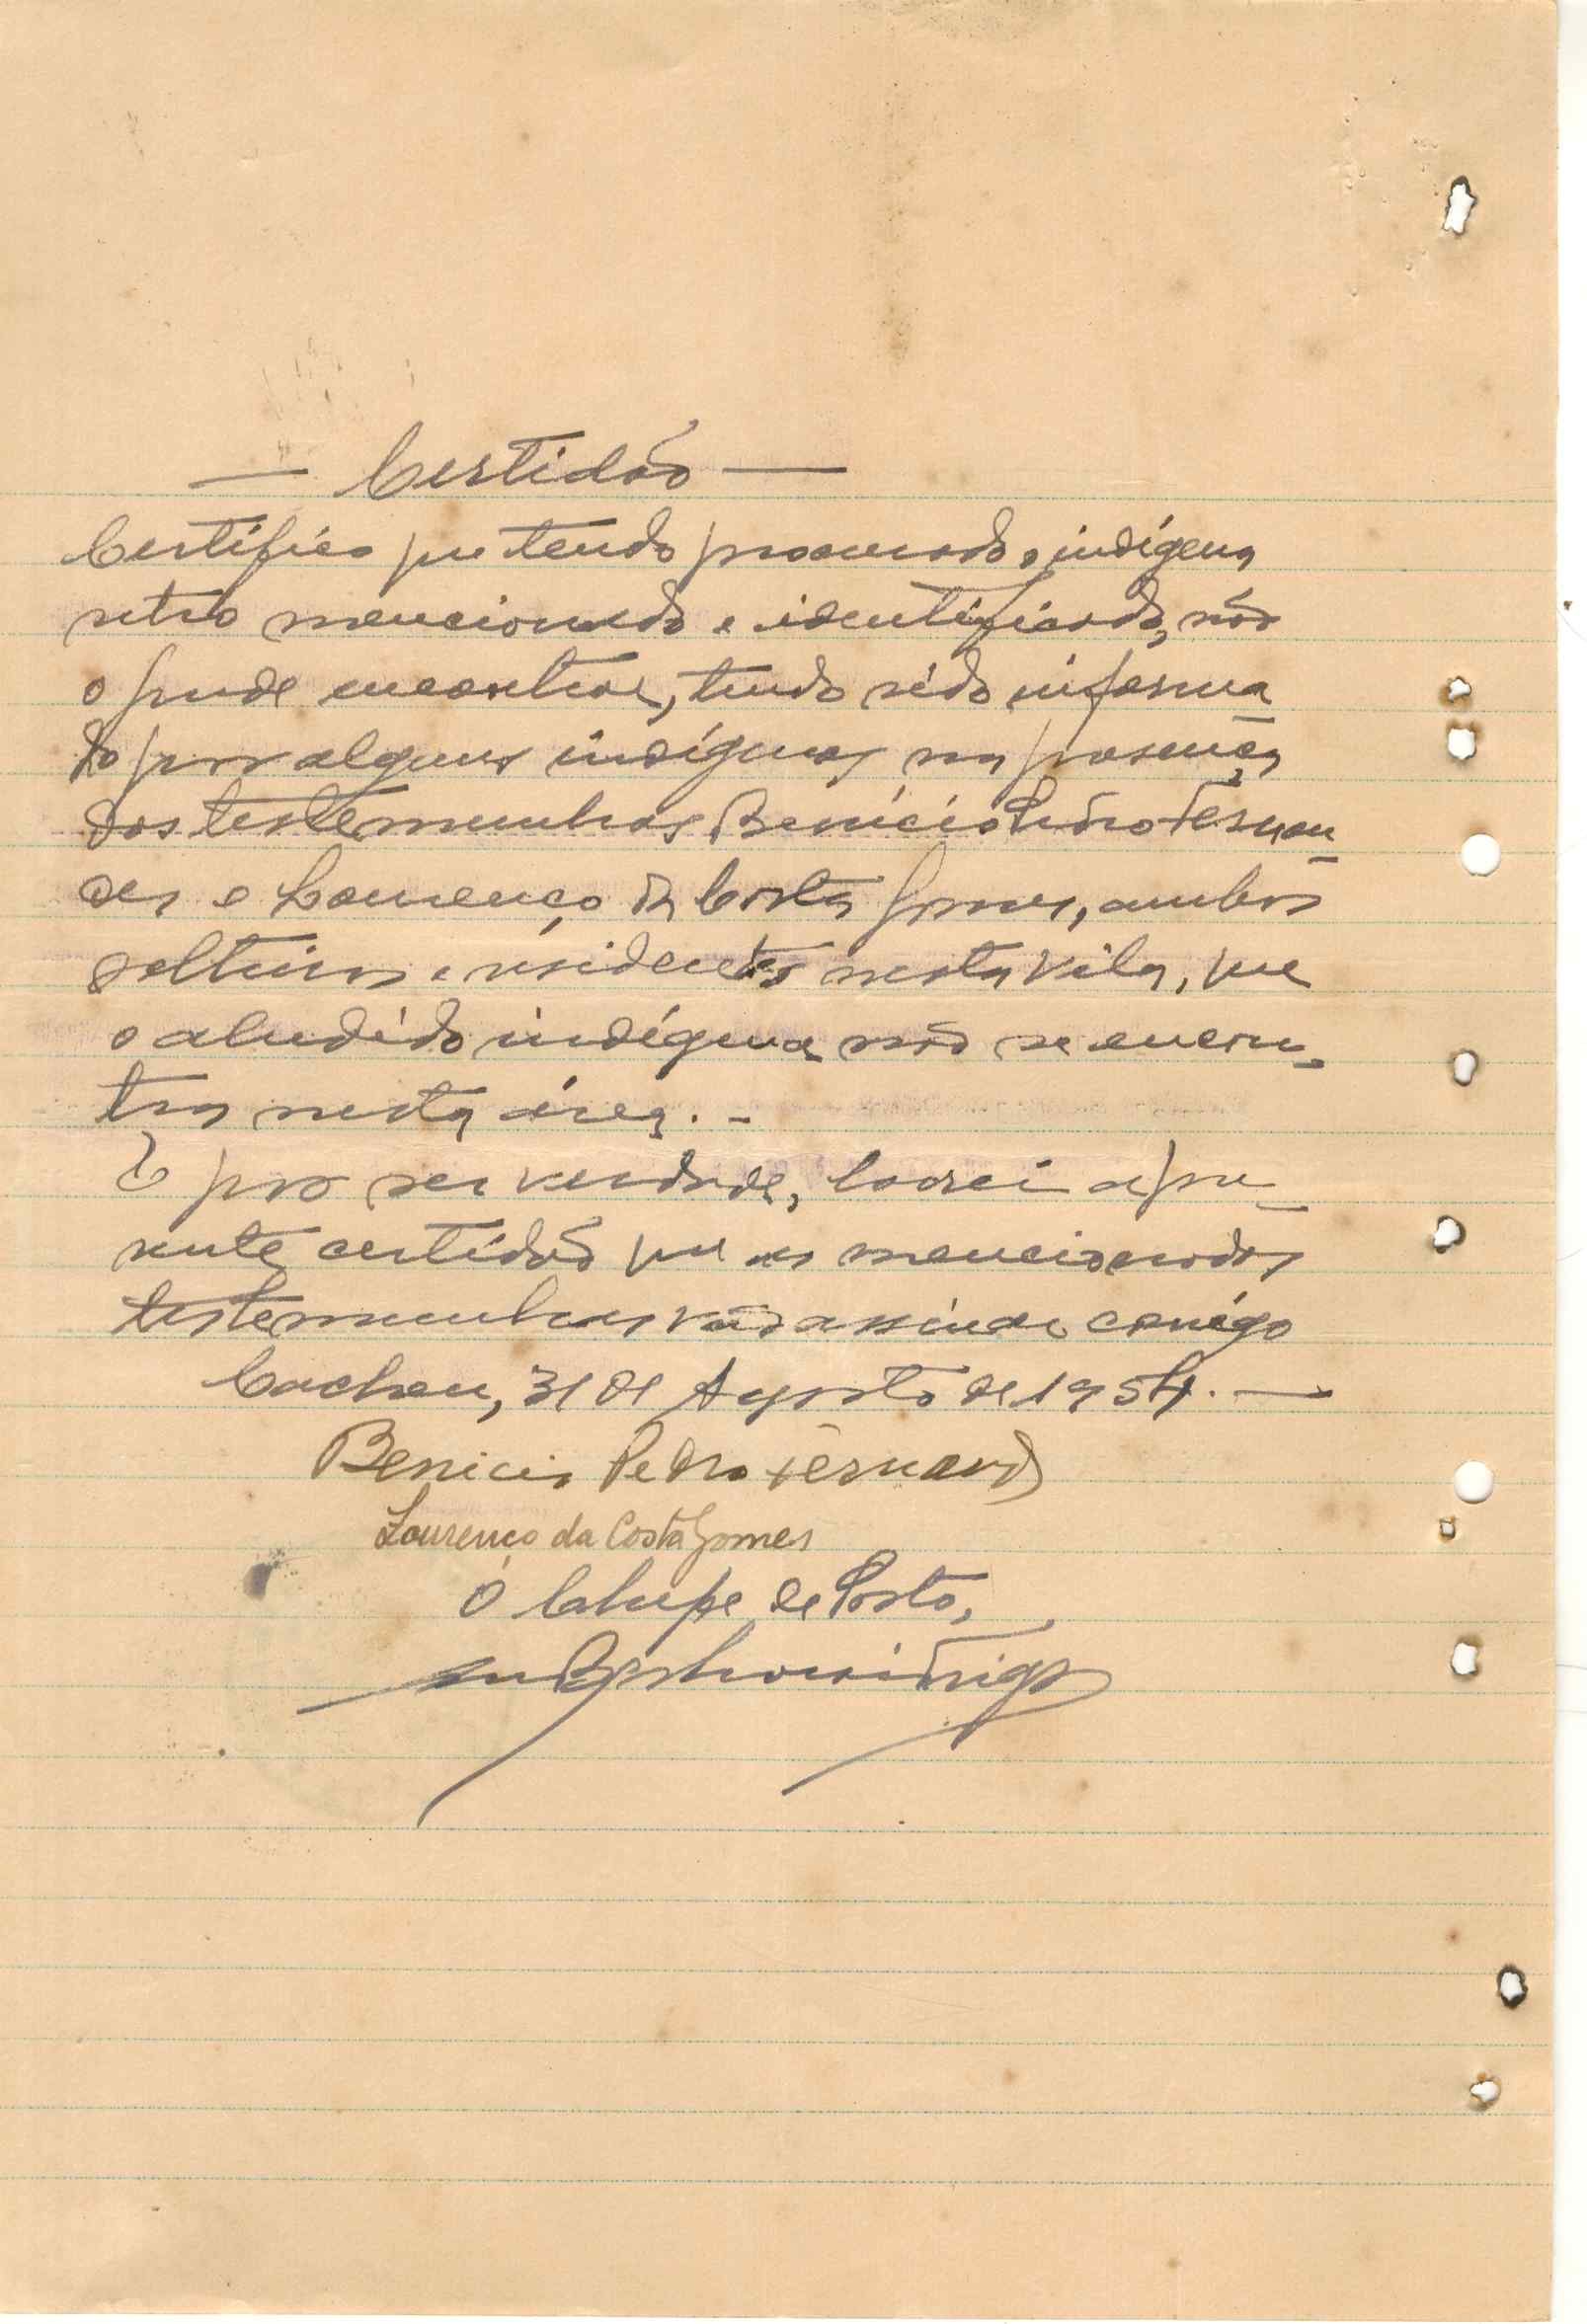 — Certidão —
Certifico que tendo procurado o indígena
retro mencionado e identificado, não
o pude encontrar, tendo sido informa
do por alguns indígenas na presença
das testemunhas Benício Pedro Fernan-
des e Lourenço da Costa Gomes, ambos
solteiros e residentes nesta vila, que
o aludido indígena não se encon-
tra nesta área. -
E por ser verdade, lavrei a pre-
sente certidão que as mencionadas
testemunhas vão assinar comigo
Cacheu, 31 de Agosto de 1954. —
Benicio Pedro Fernand
Lourenço da Costa Gomes
O Chefe de Posto,